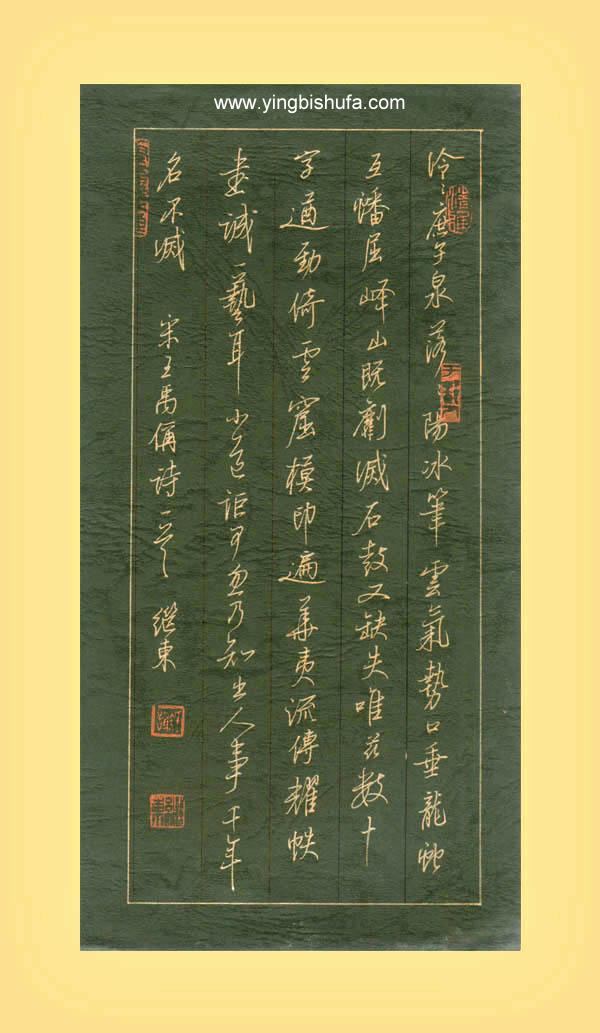 www.yingbishufa.com
泠泠庶子泉落落陽冰筆雲氣勢口垂龍蛇
互蟠屈嶧山既劘滅石鼓又缺失唯茲數十
字遒勁倚雲窟模印遍華夷流傳耀帙
書誠一藝耳小道詎可忽乃知出人事千年
名不滅
宋王禹偁詩一首 繼東